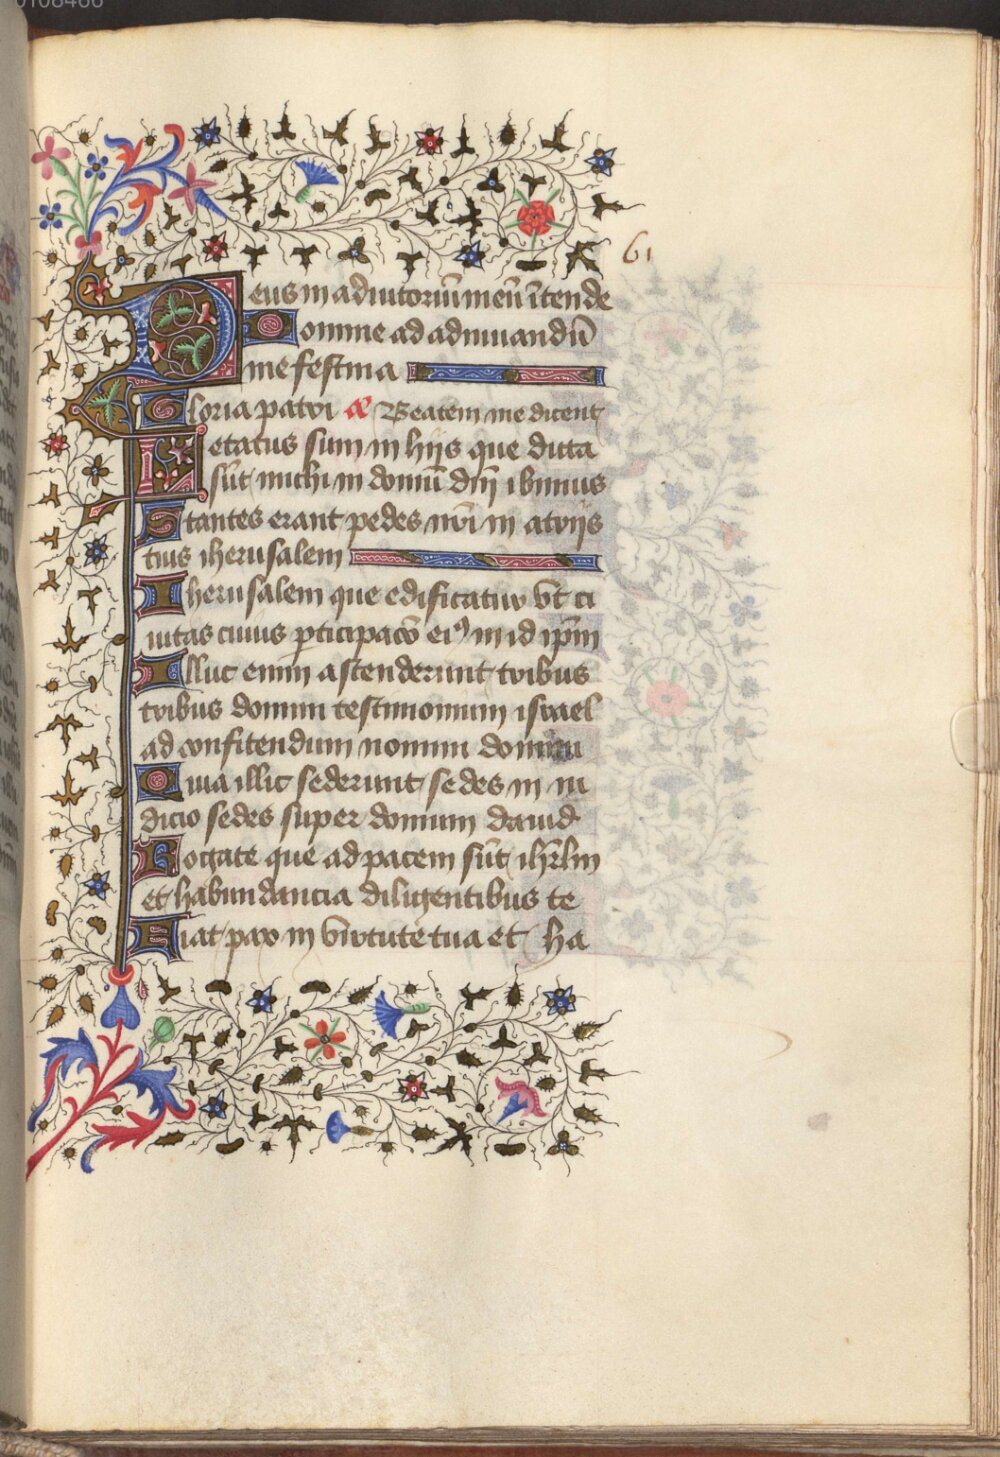 0108466
61
Deus in adiutoriū meū ītende
Domine ad adiuuandū
me festina
Gloria patri &c Beatem me dicent
Letatus sum in hijs que dicta
sūt michi in domū dn̄i ibimus
Stantes erant pedes nr̄i in atrijs
tuis iherusalem
Iherusalem que edificatur vt ci
uitas cuius ꝑticipacō eiꝰ in id ip̄m
Illuc enim ascenderunt tribus
tribus domini testimonium israel
ad confitendum nomini domini
Quia illic sederunt sedes in iu
dicio sedes super domum dauid
Rogate que ad pacem sūt ihrl̄m
et habundancia diligentibus te
Fiat pax in virtute tua et ha